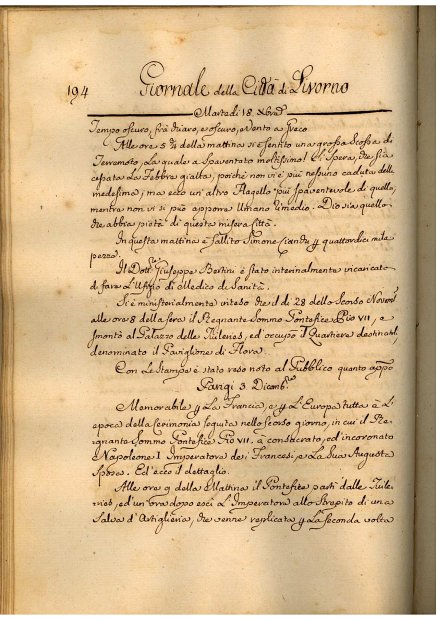 194 Giornale della Città di Livorno
Martedì 18 Xbre
Tempo oscuro, frà chiaro, e oscuro, e vento a Greco
Alle ore 5 ¾ della mattina si è sentito una grossa Scossa di
Terremoto, La quale a Spaventato moltissimo! Si Spera, che sia
cessata La Febbre gialta, poichè non vi è più nessuno caduto della
medesima; ma ecco un'altro Flagello più spaventevole di quello,
mentre non vi si può apporre Umano rimedio. Dio sia quello
che abbia pietà di questa misera Città.
In questa mattina è fallito Simone p quattordici mila
pezze.
Il Dott.r Giuseppe Bertini è stato interinalmente incaricato
di fare L'Ufizio di Medico di Sanità.
Si è ministerialmente inteso che il dì 28 dello Scorso Novembre
alle ore 8 della sera il Regnante Sommo Pontefice Pio VII, e
smontò al Palazzo delle Tuileries, ed occupò Il Quartiere destinatoli,
denominato il Paviglione di Flora.
Con Le Stampe è stato reso noto al Pubblico quanto appo
Parigi 3. Dicemb.e
Memorabile p La Francia, e p L'Europa tutta à L'
epoca della Cerimonia seguita nello scorso giorno, in cui il Re-
gnante Sommo Pontefice Pio VII. à consacrato, ed incoronato
Napoleone I Imperatore de i Francesi, e La Sua Augusta
Sposa. Ed ecco il dettaglio.
Alle ore 9 della Mattina il Pontefice partì dalle Tuile-
ries, ed un'ora dopo escì L'Imperatore allo Strepito di una
Salva d'Artiglieria, che venne replicata p La seconda volta